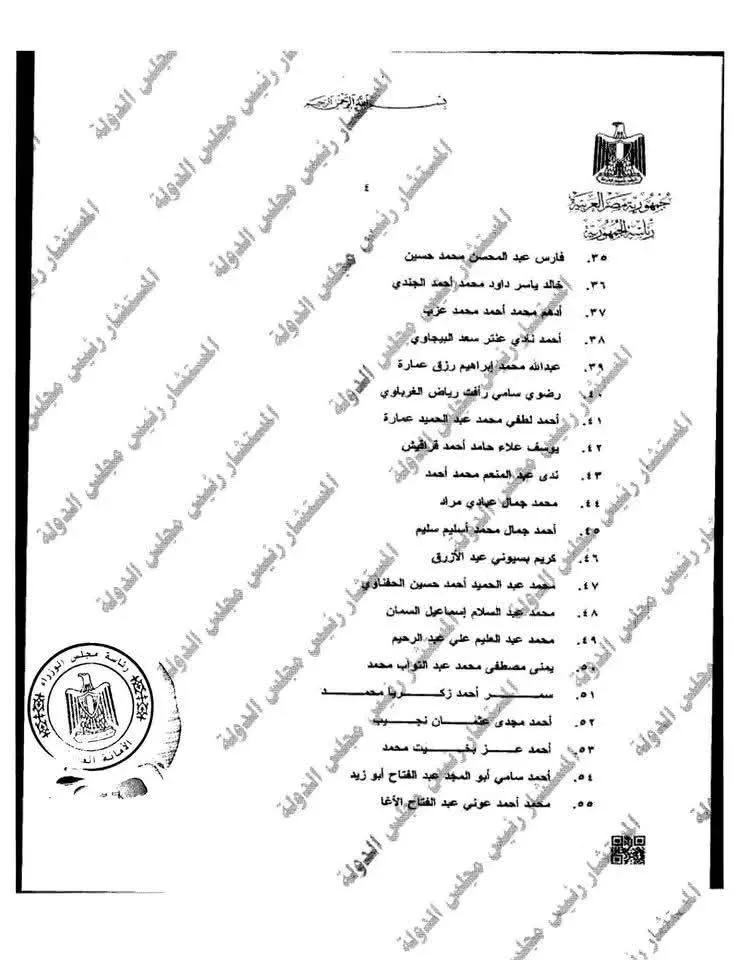 بسم الله الرحمن الرحيم
جمهورية مصر العربية
رئاسة الجمهورية
٤
٣٥. فارس عبد المحسن محمد حسين
٣٦. خالد ياسر داود محمد أحمد الجندي
٣٧. أدهم محمد أحمد محمد عزب
٣٨. أحمد نادي عنتر سعد البيجاوي
٣٩. عبدالله محمد إبراهيم رزق عمارة
٤٠. رضوي سامي رأفت رياض الغرباوي
٤١. أحمد لطفي محمد عبد الحميد عمارة
٤٢. يوسف علاء حامد أحمد قراقيش
٤٣. ندى عبد المنعم محمد أحمد
٤٤. محمد جمال عبادي مراد
٤٥. أحمد جمال محمد أسليم سليم
٤٦. كريم بسيوني عبد الأزرق
٤٧. محمد عبد الحميد أحمد حسين الحفناوي
٤٨. محمد عبد السلام إسماعيل السمان
٤٩. محمد عبد العليم علي عبد الرحيم
٥٠. يمنى مصطفى محمد عبد التواب محمد
٥١. سمـــر أحمد زكـــريا محمـــد
٥٢. أحمد مجدى عثمـــان نجـــيب
٥٣. أحمد عـــز بخـــيت محمد
٥٤. أحمد سامي أبو المجد عبد الفتاح أبو زيد
٥٥. محمد أحمد عوني عبد الفتاح الأغا
رئاسة مجلس الوزراء
الأمانة
المستشار رئيس مجلس الدولة